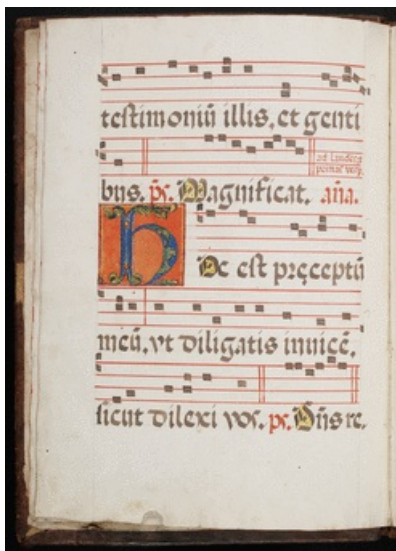 testimoniũ illis, et genti
ad Laudes
bus. ps. Magnificat. aña.
Hoc est pręceptũ
meũ, vt diligatis inuicẽ,
sicut dilexi vos. ps. Dñs re.